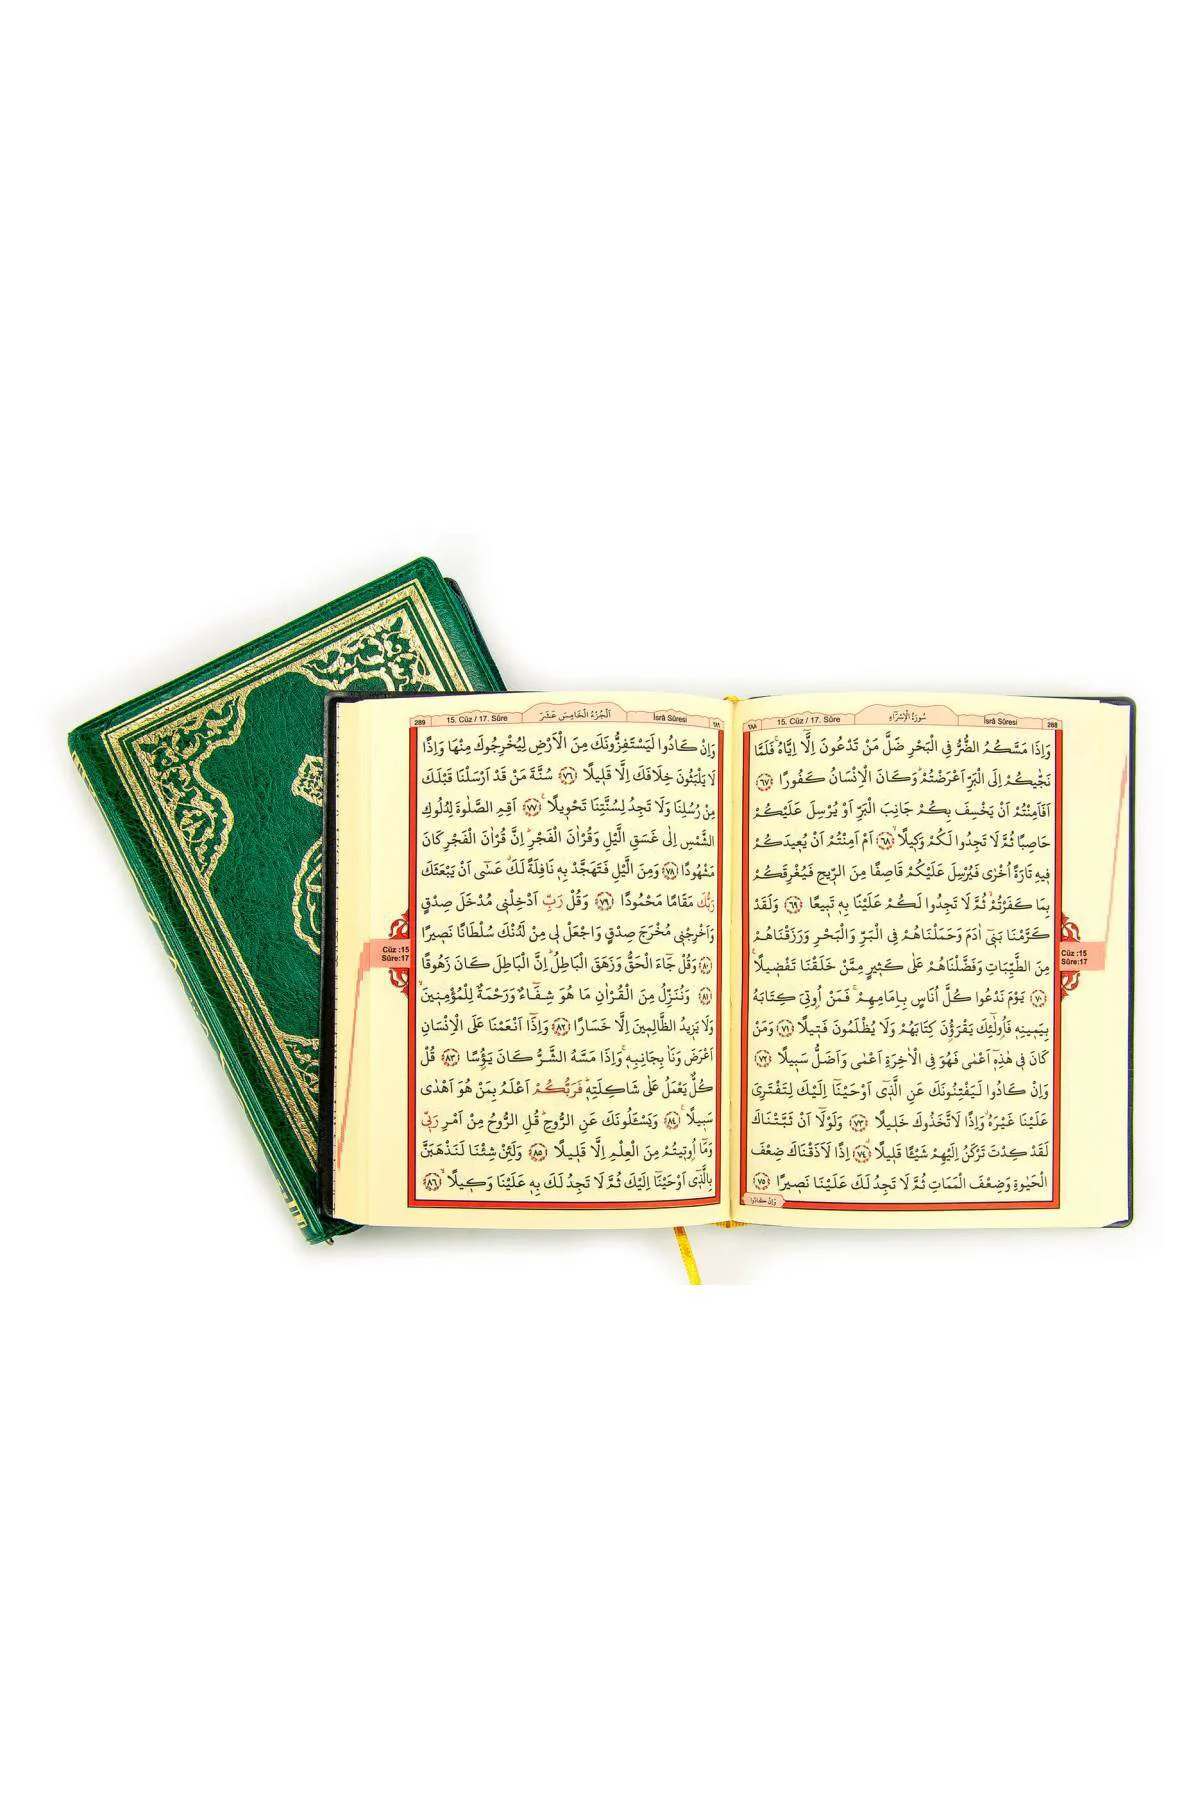 سُورَةُ الْإِسْرَاءِ
288
İsrâ Sûresi
15. Cüz / 17. Sûre
٢٨٨
وَاِذَا مَسَّكُمُ الضُّرُّ فِي الْبَحْرِ ضَلَّ مَنْ تَدْعُونَ اِلَّا اِيَّاهُۚ فَلَمَّا
نَجّٰيكُمْ اِلَى الْبَرِّ اَعْرَضْتُمْۜ وَكَانَ الْاِنْسَانُ كَفُورًا ﴿٦٧﴾
اَفَاَمِنْتُمْ اَنْ يَخْسِفَ بِكُمْ جَانِبَ الْبَرِّ اَوْ يُرْسِلَ عَلَيْكُمْ
حَاصِبًا ثُمَّ لَا تَجِدُوا لَكُمْ وَكٖيلًاۙ ﴿٦٨﴾ اَمْ اَمِنْتُمْ اَنْ يُعٖيدَكُمْ
فٖيهِ تَارَةً اُخْرٰى فَيُرْسِلَ عَلَيْكُمْ قَاصِفًا مِنَ الرّٖيحِ فَيُغْرِقَكُمْ
بِمَا كَفَرْتُمْۙ ثُمَّ لَا تَجِدُوا لَكُمْ عَلَيْنَا بِهٖ تَبٖيعًا ﴿٦٩﴾ وَلَقَدْ
كَرَّمْنَا بَنٖٓي اٰدَمَ وَحَمَلْنَاهُمْ فِي الْبَرِّ وَالْبَحْرِ وَرَزَقْنَاهُمْ
مِنَ الطَّيِّبَاتِ وَفَضَّلْنَاهُمْ عَلٰى كَثٖيرٍ مِمَّنْ خَلَقْنَا تَفْضٖيلًاۚ
﴿٧٠﴾ يَوْمَ نَدْعُوا كُلَّ اُنَاسٍ بِاِمَامِهِمْۚ فَمَنْ اُو۫تِيَ كِتَابَهُ
بِيَمٖينِهٖ فَاُو۬لٰٓئِكَ يَقْرَؤُ۫نَ كِتَابَهُمْ وَلَا يُظْلَمُونَ فَتٖيلًا ﴿٧١﴾ وَمَنْ
كَانَ فٖي هٰذِهٖٓ اَعْمٰى فَهُوَ فِي الْاٰخِرَةِ اَعْمٰى وَاَضَلُّ سَبٖيلًا ﴿٧٢﴾
وَاِنْ كَادُوا لَيَفْتِنُونَكَ عَنِ الَّذٖٓي اَوْحَيْنَٓا اِلَيْكَ لِتَفْتَرِيَ
عَلَيْنَا غَيْرَهُۗ وَاِذًا لَاتَّخَذُوكَ خَلٖيلًا ﴿٧٣﴾ وَلَوْلَٓا اَنْ ثَبَّتْنَاكَ
لَقَدْ كِدْتَ تَرْكَنُ اِلَيْهِمْ شَيْـًٔا قَلٖيلًاۗ ﴿٧٤﴾ اِذًا لَاَذَقْنَاكَ ضِعْفَ
الْحَيٰوةِ وَضِعْفَ الْمَمَاتِ ثُمَّ لَا تَجِدُ لَكَ عَلَيْنَا نَصٖيرًا ﴿٧٥﴾
وَاِنْ كَادُوا
Cüz :15
Sûre:17
289
15. Cüz / 17. Sûre
اَلْجُزْءُ الْخَامِسَ عَشَرَ
İsrâ Sûresi
وَاِنْ كَادُوا لَيَسْتَفِزُّونَكَ مِنَ الْاَرْضِ لِيُخْرِجُوكَ مِنْهَا وَاِذًا
لَا يَلْبَثُونَ خِلَافَكَ اِلَّا قَلٖيلًا ﴿٧٦﴾ سُنَّةَ مَنْ قَدْ اَرْسَلْنَا قَبْلَكَ
مِنْ رُسُلِنَا وَلَا تَجِدُ لِسُنَّتِنَا تَحْوٖيلًاۚ ﴿٧٧﴾ اَقِمِ الصَّلٰوةَ لِدُلُوكِ
الشَّمْسِ اِلٰى غَسَقِ الَّيْلِ وَقُرْاٰنَ الْفَجْرِۜ اِنَّ قُرْاٰنَ الْفَجْرِ كَانَ
مَشْهُودًا ﴿٧٨﴾ وَمِنَ الَّيْلِ فَتَهَجَّدْ بِهٖ نَافِلَةً لَكَۗ عَسٰٓى اَنْ يَبْعَثَكَ
رَبُّكَ مَقَامًا مَحْمُودًا ﴿٧٩﴾ وَقُلْ رَبِّ اَدْخِلْنٖي مُدْخَلَ صِدْقٍ
وَاَخْرِجْنٖي مُخْرَجَ صِدْقٍ وَاجْعَلْ لٖي مِنْ لَدُنْكَ سُلْطَانًا نَصٖيرًا
﴿٨٠﴾ وَقُلْ جَٓاءَ الْحَقُّ وَزَهَقَ الْبَاطِلُۜ اِنَّ الْبَاطِلَ كَانَ زَهُوقًا
﴿٨١﴾ وَنُنَزِّلُ مِنَ الْقُرْاٰنِ مَا هُوَ شِفَٓاءٌ وَرَحْمَةٌ لِلْمُؤْمِنٖينَۙ
وَلَا يَزٖيدُ الظَّالِمٖينَ اِلَّا خَسَارًا ﴿٨٢﴾ وَاِذَٓا اَنْعَمْنَا عَلَى الْاِنْسَانِ
اَعْرَضَ وَنَاٰ بِجَانِبِهٖۚ وَاِذَا مَسَّهُ الشَّرُّ كَانَ يَؤُ۫سًا ﴿٨٣﴾ قُلْ
كُلٌّ يَعْمَلُ عَلٰى شَاكِلَتِهٖۜ فَرَبُّكُمْ اَعْلَمُ بِمَنْ هُوَ اَهْدٰى
سَبٖيلًا۟ ﴿٨٤﴾ وَيَسْـَٔلُونَكَ عَنِ الرُّوحِۜ قُلِ الرُّوحُ مِنْ اَمْرِ رَبّٖي
وَمَٓا اُو۫تٖيتُمْ مِنَ الْعِلْمِ اِلَّا قَلٖيلًا ﴿٨٥﴾ وَلَئِنْ شِئْنَا لَنَذْهَبَنَّ
بِالَّذٖٓي اَوْحَيْنَٓا اِلَيْكَ ثُمَّ لَا تَجِدُ لَكَ بِهٖ عَلَيْنَا وَكٖيلًاۙ ﴿٨٦﴾
Cüz :15
Sûre:17